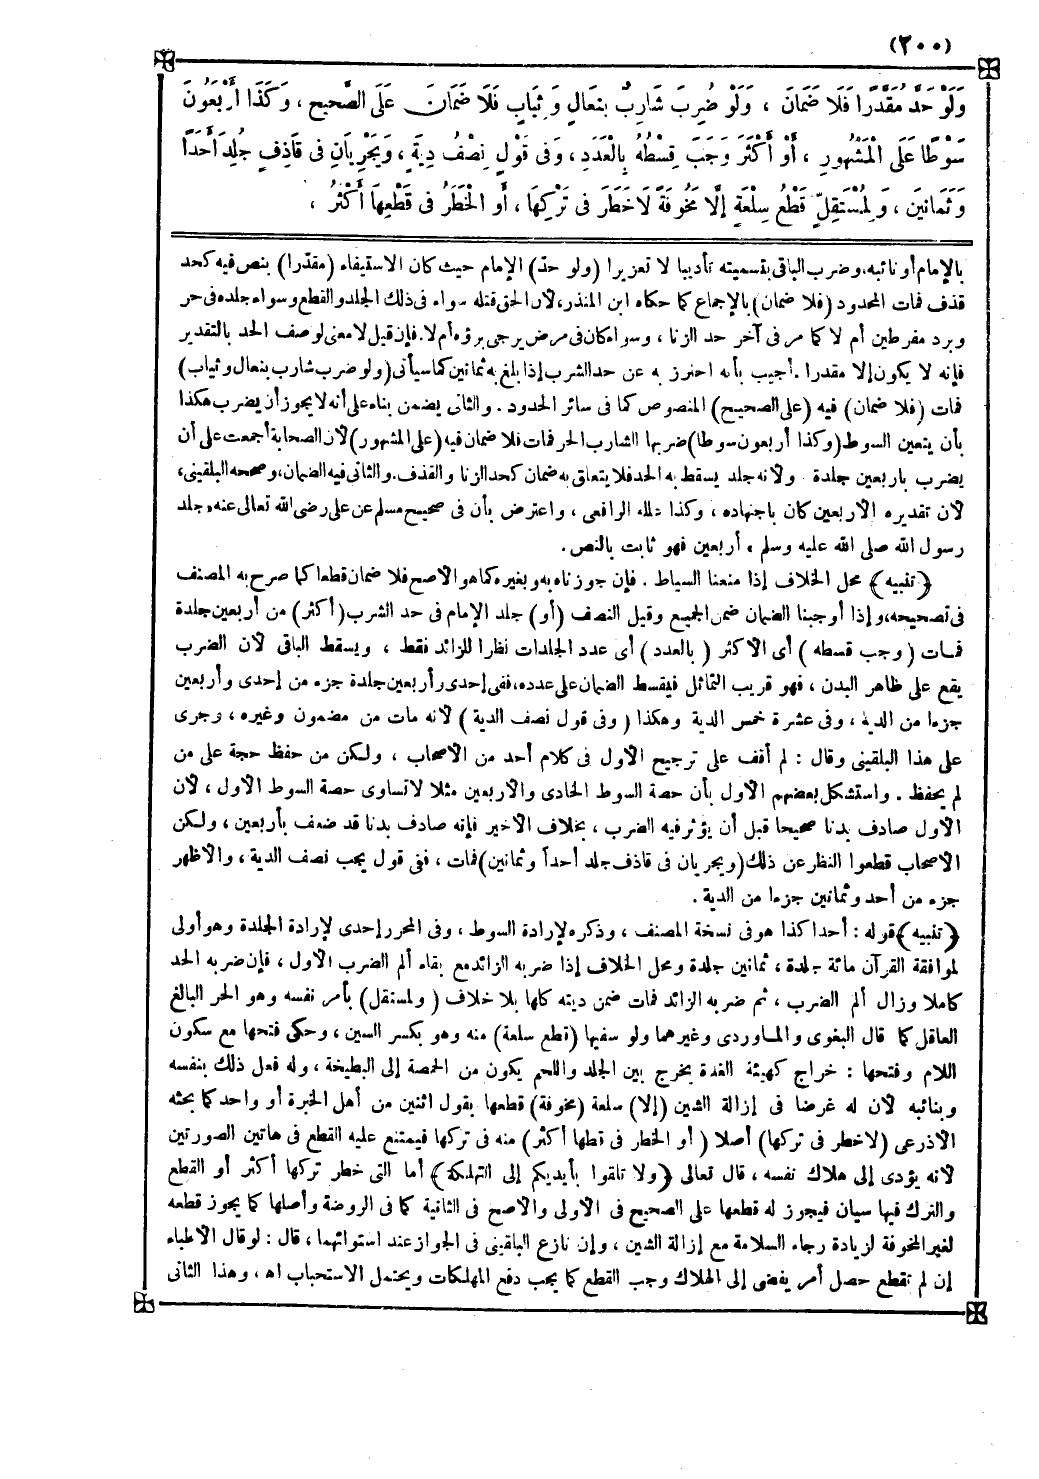 (٢٠٠)
وَلَوْ حَدَّ مُقَدَّرًا فَلَا ضَمَانَ ، وَلَوْ ضُرِبَ شَارِبٌ بِنِعَالٍ وَثِيَابٍ فَلَا ضَمَانَ عَلَى الصَّحِيحِ ، وَكَذَا أَرْبَعُونَ
سَوْطًا عَلَى الْمَشْهُورِ ، أَوْ أَكْثَرَ وَجَبَ قِسْطُهُ بِالْعَدَدِ ، وَفِي قَوْلٍ نِصْفُ دِيَةٍ ، وَيَجْرِيَانِ فِي قَاذِفٍ جُلِدَ أَحَدًا
وَثَمَانِينَ ، وَلِمُسْتَقِلٍّ قَطْعُ سِلْعَةٍ إِلَّا مَخُوفَةً لَا خَطَرَ فِي تَرْكِهَا ، أَوِ الْخَطَرُ فِي قَطْعِهَا أَكْثَرُ ،
بالإمام أو نائبه، وضرب الباقى بتسميته تأديبا لا تعزيرا (ولو حدّ) الإمام حيث كان الاستيفاء (مقدّرا) بنص فيه كحد
قذف فمات المحدود (فلا ضمان) بالإجماع كما حكاه ابن المنذر، لأن الحق قتله سواء فى ذلك الجلد والقطع وسواء جلده فى حر
وبرد مفرطين أم لا كما مر فى آخر حد الزنا ، وسواء كان فى مرض يرجى برؤه أم لا. فإن قيل لا معنى لوصف الحد بالتقدير
فإنه لا يكون إلا مقدرا . أجيب بأنه احترز به عن حد الشرب إذا بلغ به ثمانين كما سيأتى (ولو ضرب شارب بنعال وثياب)
فمات (فلا ضمان) فيه (على الصحيح) المنصوص كما فى سائر الحدود . والثانى يضمن بناء على أنه لا يجوز أن يضرب هكذا
بأن يتعين السوط (وكذا أربعون سوطا) ضربها الشارب الحر فمات فلا ضمان فيه (على المشهور) لأن الصحابة أجمعت على أن
يضرب بأربعين جلدة ولأنه جلد يسقط به الحد فلا يتعلق به ضمان كحد الزنا والقذف. والثانى فيه الضمان، وصححه البلقينى،
لأن تقديره الأربعين كان باجتهاده ، وكذا علله الرافعى ، واعترض بأن فى صحيح مسلم عن على رضى الله تعالى عنه، جلد
رسول الله صلى الله عليه وسلم ، أربعين فهو ثابت بالنص.
﴿ تنبيه ﴾ محل الخلاف إذا منعنا السياط . فإن جوزناه به وبغيره كما هو الأصح فلا ضمان قطعا كما صرح به المصنف
فى تصحيحه، وإذا أوجبنا الضمان ضمن الجميع وقيل النصف (أو) جلد الإمام فى حد الشرب (أكثر) من أربعين جلدة
فمات ( وجب قسطه ) أى الأكثر ( بالعدد ) أى عدد الجلدات نظرا للزائد فقط ، ويسقط الباقى لأن الضرب
يقع على ظاهر البدن ، فهو قريب التماثل فيقسط الضمان على عدده، ففى إحدى وأربعين جلدة جزء من إحدى وأربعين
جزءا من الدية ، وفى عشرة خمس الدية وهكذا ( وفى قول نصف الدية ) لأنه مات من مضمون وغيره ، وجرى
على هذا البلقينى وقال : لم أقف على ترجيح الأول فى كلام أحد من الأصحاب ، ولكن من حفظ حجة على من
لم يحفظ . واستشكل بعضهم الأول بأن حصة السوط الحادى والأربعين مثلا لا تساوى حصة السوط الأول ، لأن
الأول صادف بدنا صحيحا قبل أن يؤثر فيه الضرب ، بخلاف الأخير فإنه صادف بدنا قد ضعف بأربعين ، ولكن
الأصحاب قطعوا النظر عن ذلك (ويجريان فى قاذف جلد أحدا وثمانين) فمات ، ففى قول يجب نصف الدية ، والأظهر
جزء من أحد وثمانين جزءا من الدية .
﴿ تنبيه ﴾ قوله : أحدا كذا هو فى نسخة المصنف ، وذكره لإرادة السوط ، وفى المحرر إحدى لإرادة الجلدة وهو أولى
لموافقة القرآن مائة جلدة ، ثمانين جلدة ومحل الخلاف إذا ضربه الزائد مع بقاء ألم الضرب الأول ، فإن ضربه الحد
كاملا وزال ألم الضرب ، ثم ضربه الزائد فمات ضمن ديته كلها بلا خلاف ( ولمستقل) بأمر نفسه وهو الحر البالغ
العاقل كما قال البغوى والماوردى وغيرهما ولو سفيها (قطع سلعة) منه وهو بكسر السين ، وحكى فتحها مع سكون
اللام وفتحها : خراج كهيئة الغدة يخرج بين الجلد واللحم يكون من الحمصة إلى البطيخة ، وله فعل ذلك بنفسه
وبنائبه لأن له غرضا فى إزالة الشين (إلا) سلعة (مخوفة) قطعها بقول اثنين من أهل الخبرة أو واحد كما بحثه
الأذرعى (لا خطر فى تركها) أصلا ( أو الخطر فى قطعها أكثر) منه فى تركها فيمتنع عليه القطع فى هاتين الصورتين
لأنه يؤدى إلى هلاك نفسه ، قال تعالى ﴿ ولا تلقوا بأيديكم إلى التهلكة ﴾ أما التى خطر تركها أكثر أو القطع
والترك فيها سيان فيجوز له قطعها على الصحيح فى الأولى والأصح فى الثانية كما فى الروضة وأصلها كما يجوز قطعه
لغير المخوفة لزيادة رجاء السلامة مع إزالة الشين ، وإن نازع البلقينى فى الجواز عند استوائهما ، قال : لو قال الأطباء
إن لم تقطع حصل أمر يفضى إلى الهلاك وجب القطع كما يجب دفع المهلكات ويحتمل الاستحباب اه ، وهذا الثانى